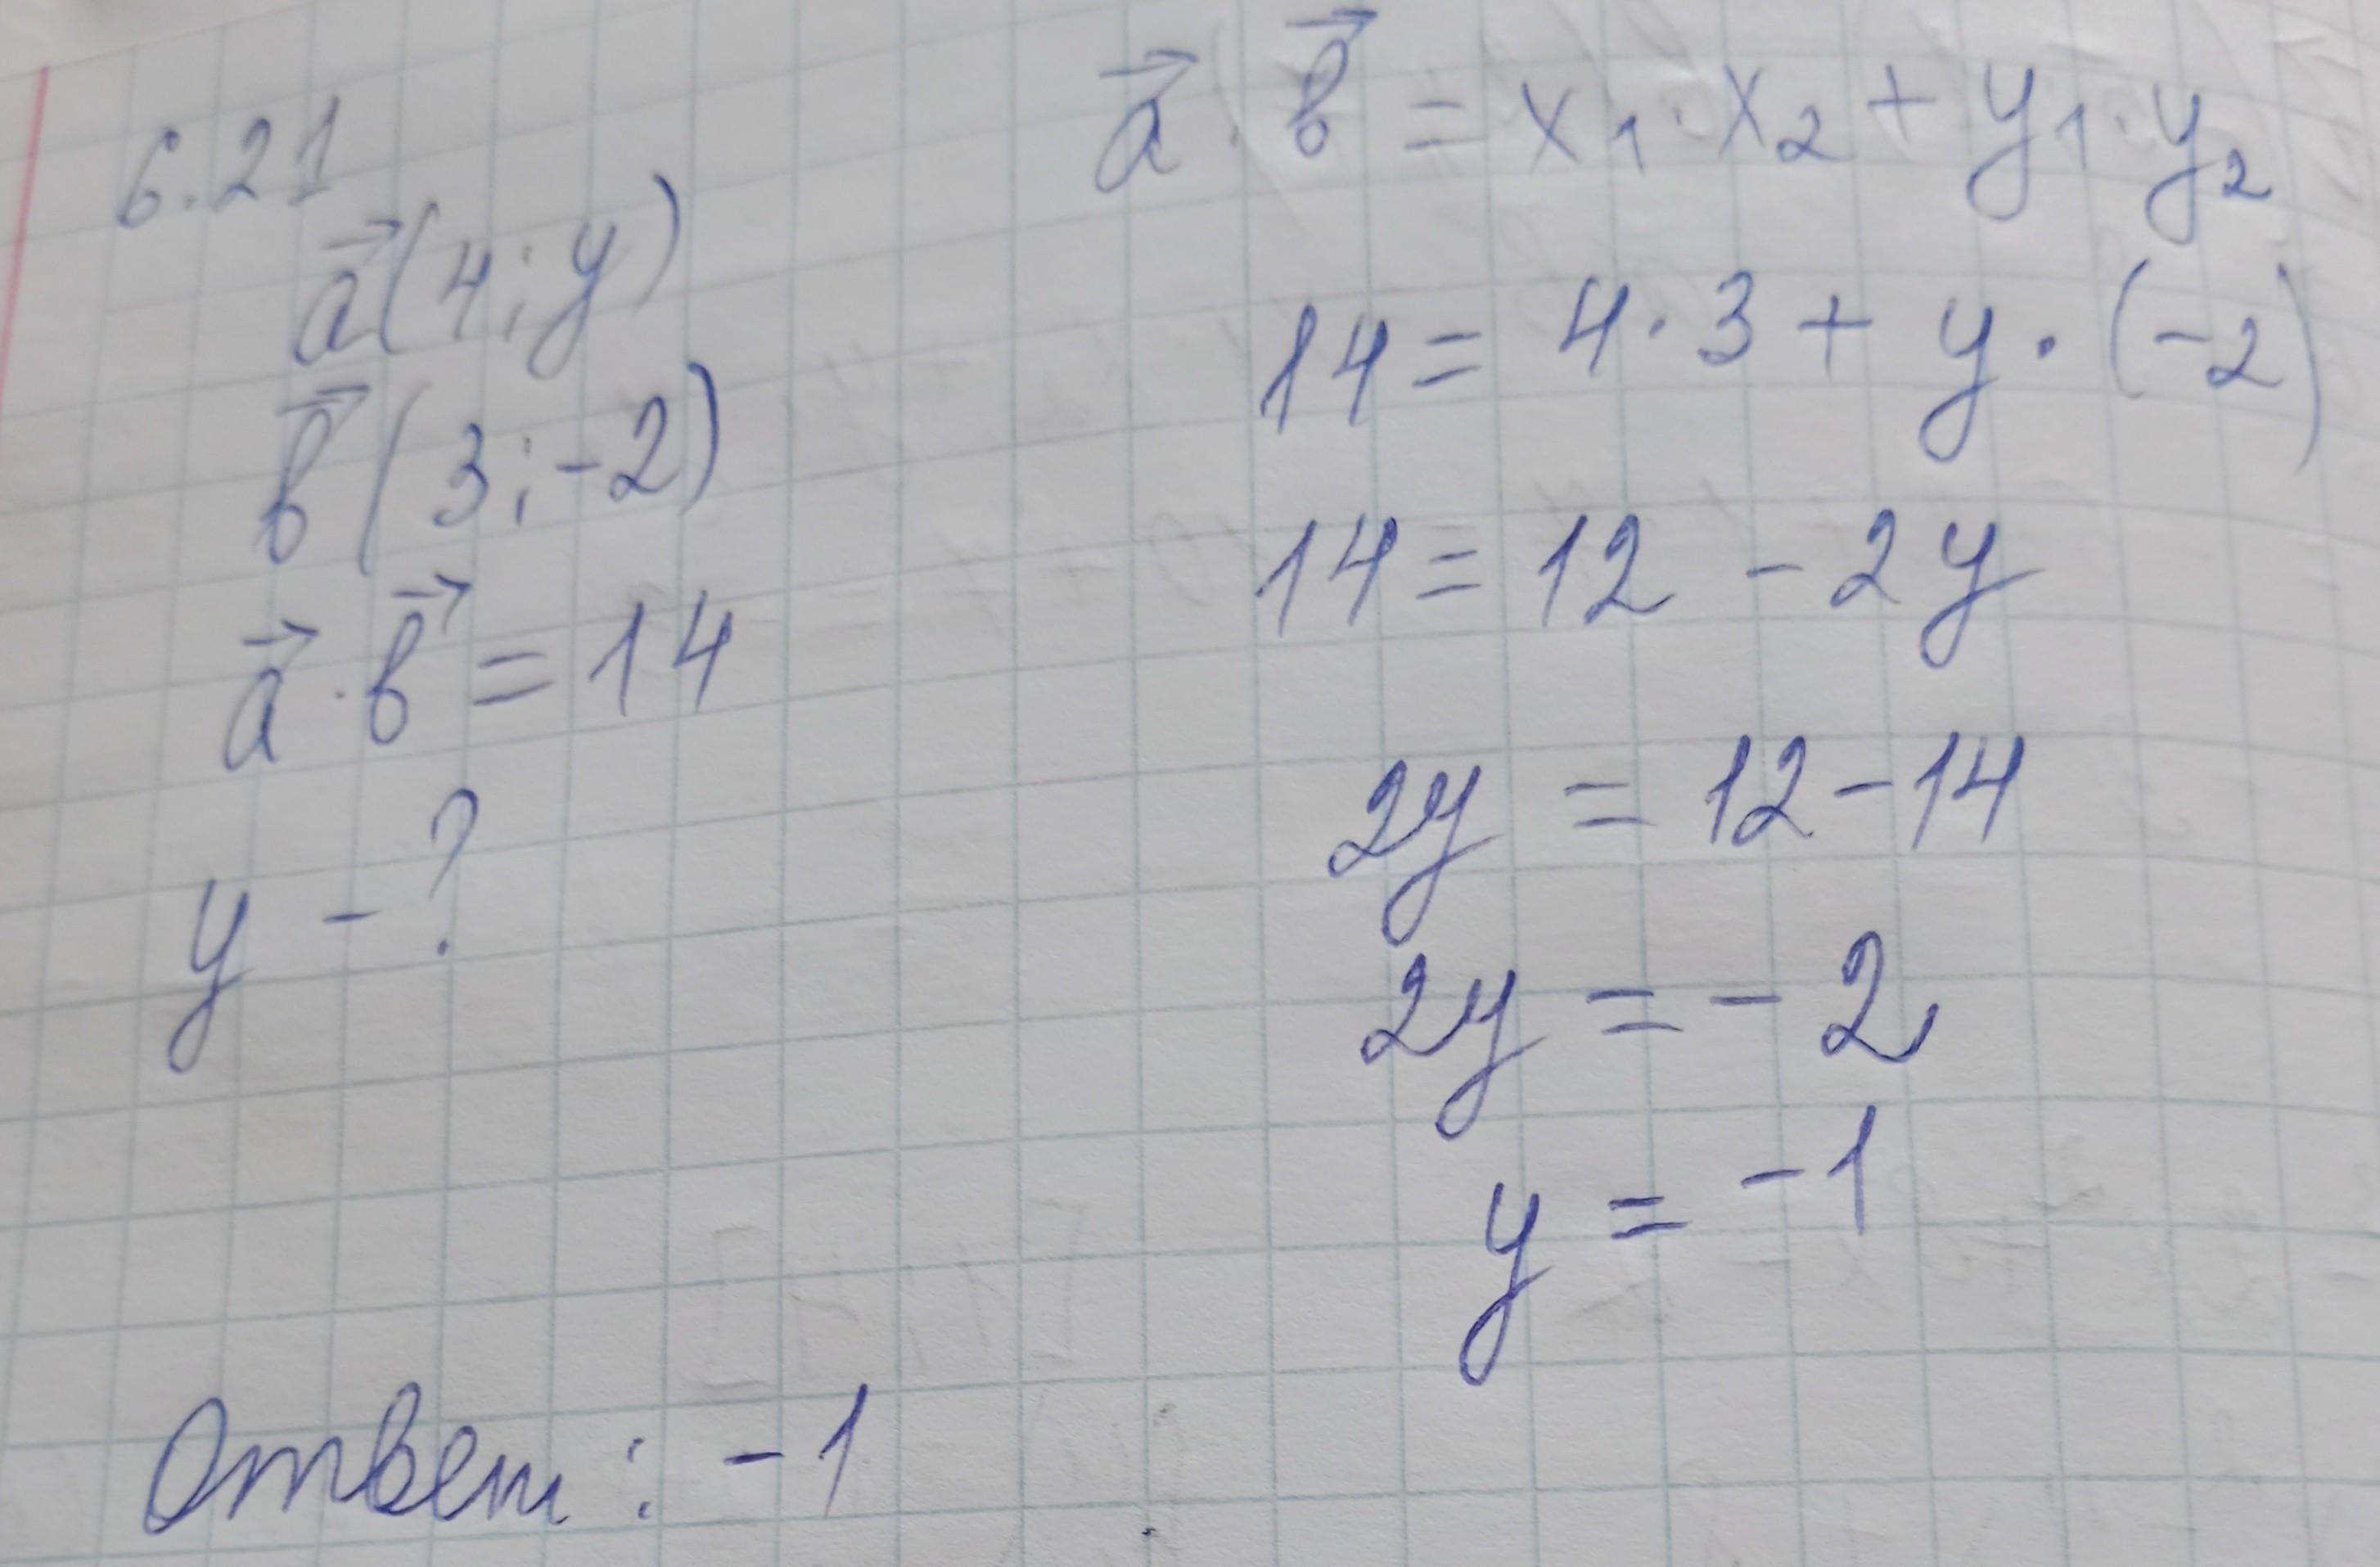 6.21
a⃗(4; y)
b⃗(3; -2)
a⃗ · b⃗ = 14
y - ?
a⃗ · b⃗ = x₁ · x₂ + y₁ · y₂
14 = 4 · 3 + y · (-2)
14 = 12 - 2y
2y = 12 - 14
2y = - 2
y = -1
Ответ: -1